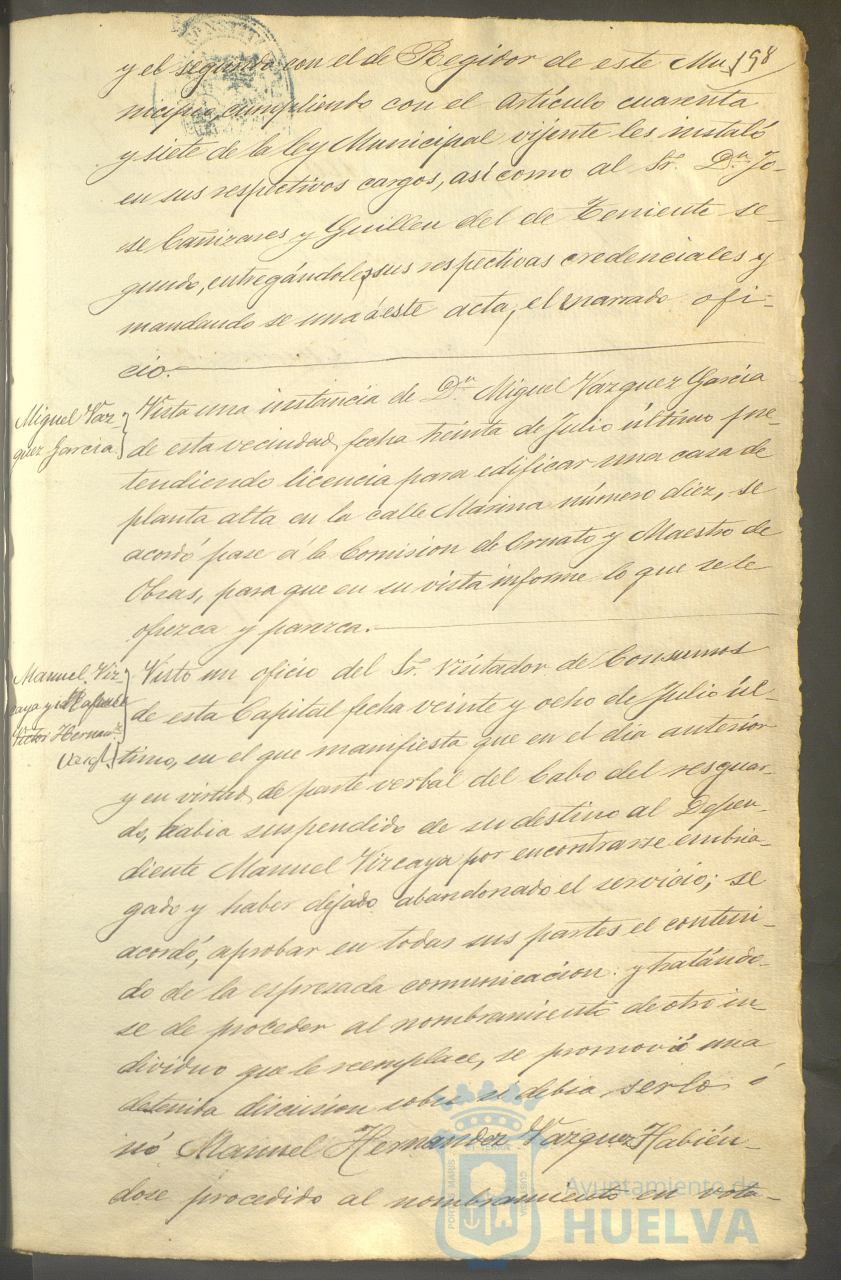 198
y el segundo con el de Regidor de este Mu-
nicipio, cumpliendo con el Artículo cuarenta
y siete de la ley Municipal vijente les instaló
en sus respectivos cargos, así como al Sr. Dn. Jo-
se Cañizares y Guillen del de Teniente se-
gundo, entregándoles sus respectivas credenciales y
mandando se una á este acta, el narrado ofi-
cio.
Miguel Vaz-
quez Garcia.
Vista una instancia de Dn. Miguel Vazquez Garcia
de esta vecindad, fecha treinta de Julio último pre-
tendiendo licencia para edificar una casa de
planta alta en la calle Marina número diez, se
acordó pase á la Comision de Ornato y Maestro de
Obras, para que en su vista informe lo que se le
ofrezca y parezca.
Manuel Viz-
caya y
Victor Hernand
Visto un oficio del Sr. Visitador de Consumos
de esta Capital fecha veinte y ocho de Julio úl-
timo, en el que manifiesta que en el dia anterior
y en virtud de parte verbal del Cabo del resguar-
do, habia suspendido de su destino al Depen-
diente Manuel Vizcaya por encontrarse embria-
gado y haber dejado abandonado el servicio; se
acordó, aprobar en todas sus partes el conteni-
do de la espresada comunicacion: y tratándo-
se de proceder al nombramiento de otro in-
dividuo que le reemplace, se promovió una
detenida discusion sobre si debia serlo ó
nó Manuel Hernandez Vazquez. Habién-
dose procedido al nombramiento en vota-
Ayuntamiento de
HUELVA